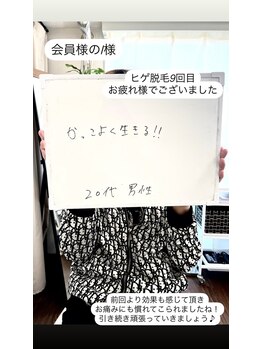 会員様のI様
ヒゲ脱毛9回目
お疲れ様でございました
かっこよく生きる!!
20代 男性
前回より効果も感じて頂き
お痛みにも慣れてこられましたね！
引き続き頑張っていきましょう♪